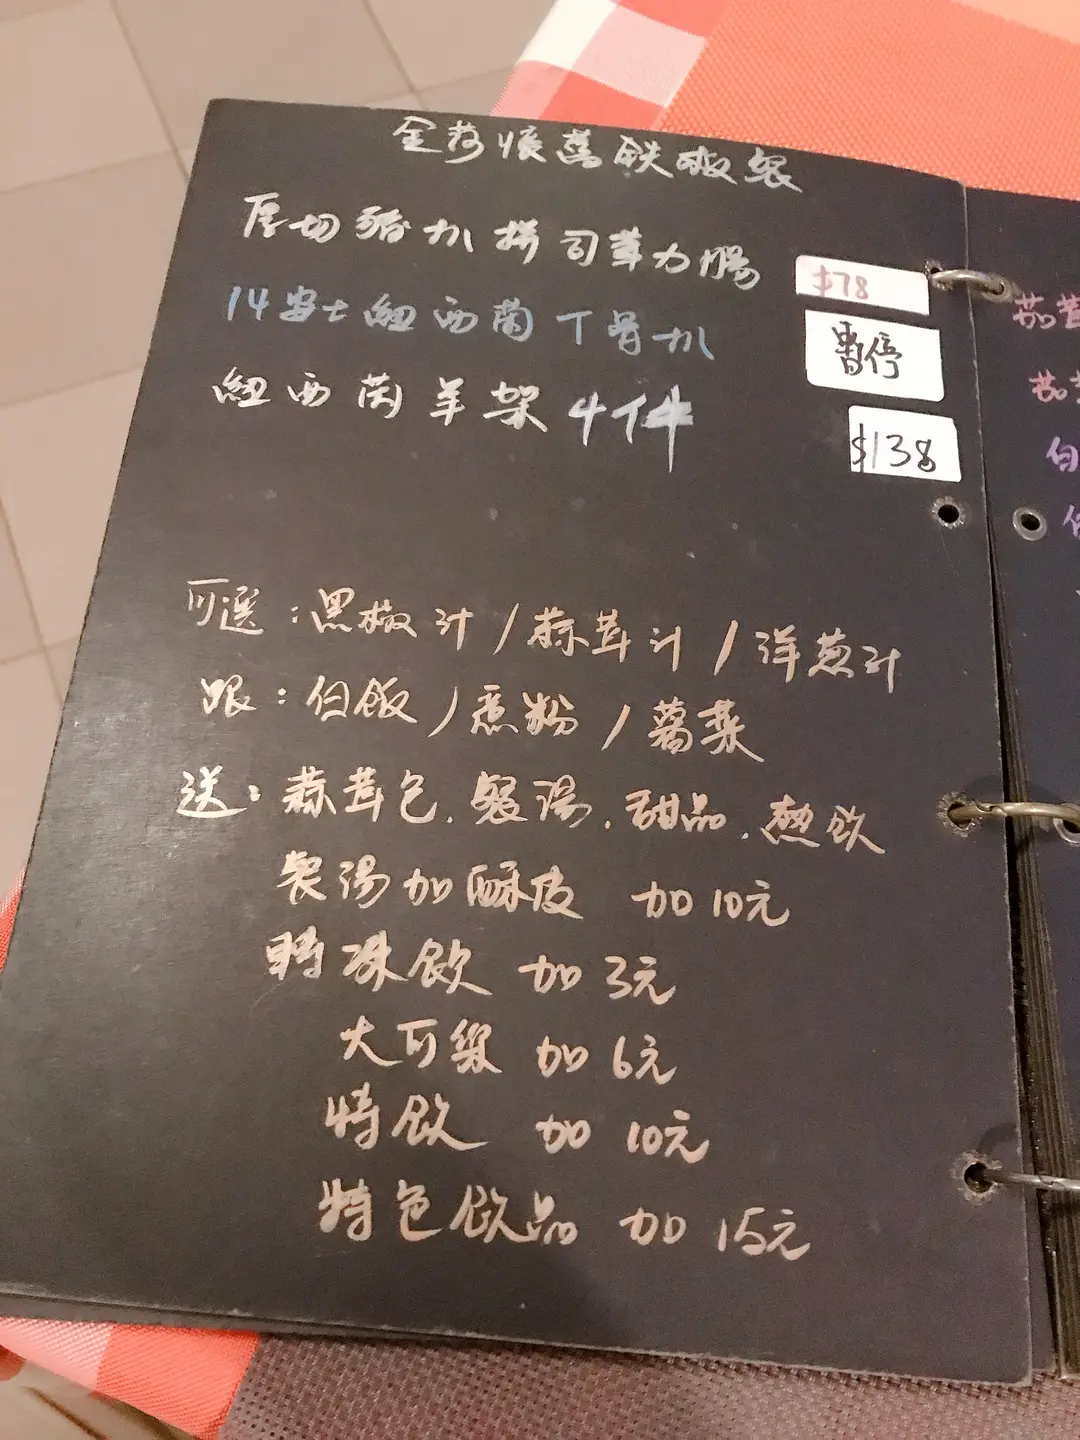 金莎懷舊鉄板餐
厚切豬扒拼司華力腸 $78
14安士紐西蘭T骨扒 暫停
紐西蘭羊架4件 $138
可選:黑椒汁/蒜茸汁/洋葱汁
跟:白飯/意粉/薯菜
送:蒜茸包.餐湯.甜品.熱飲
餐湯加酥皮 加10元
時凍飲 加3元
大可樂 加6元
特飲 加10元
特色飲品 加15元
茄
茄
白